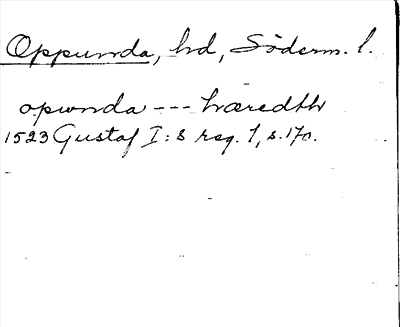 Oppunda, hd, Söderm. l.
opwnda --- hæredth
1523 Gustaf I:s reg. 1, s. 170.